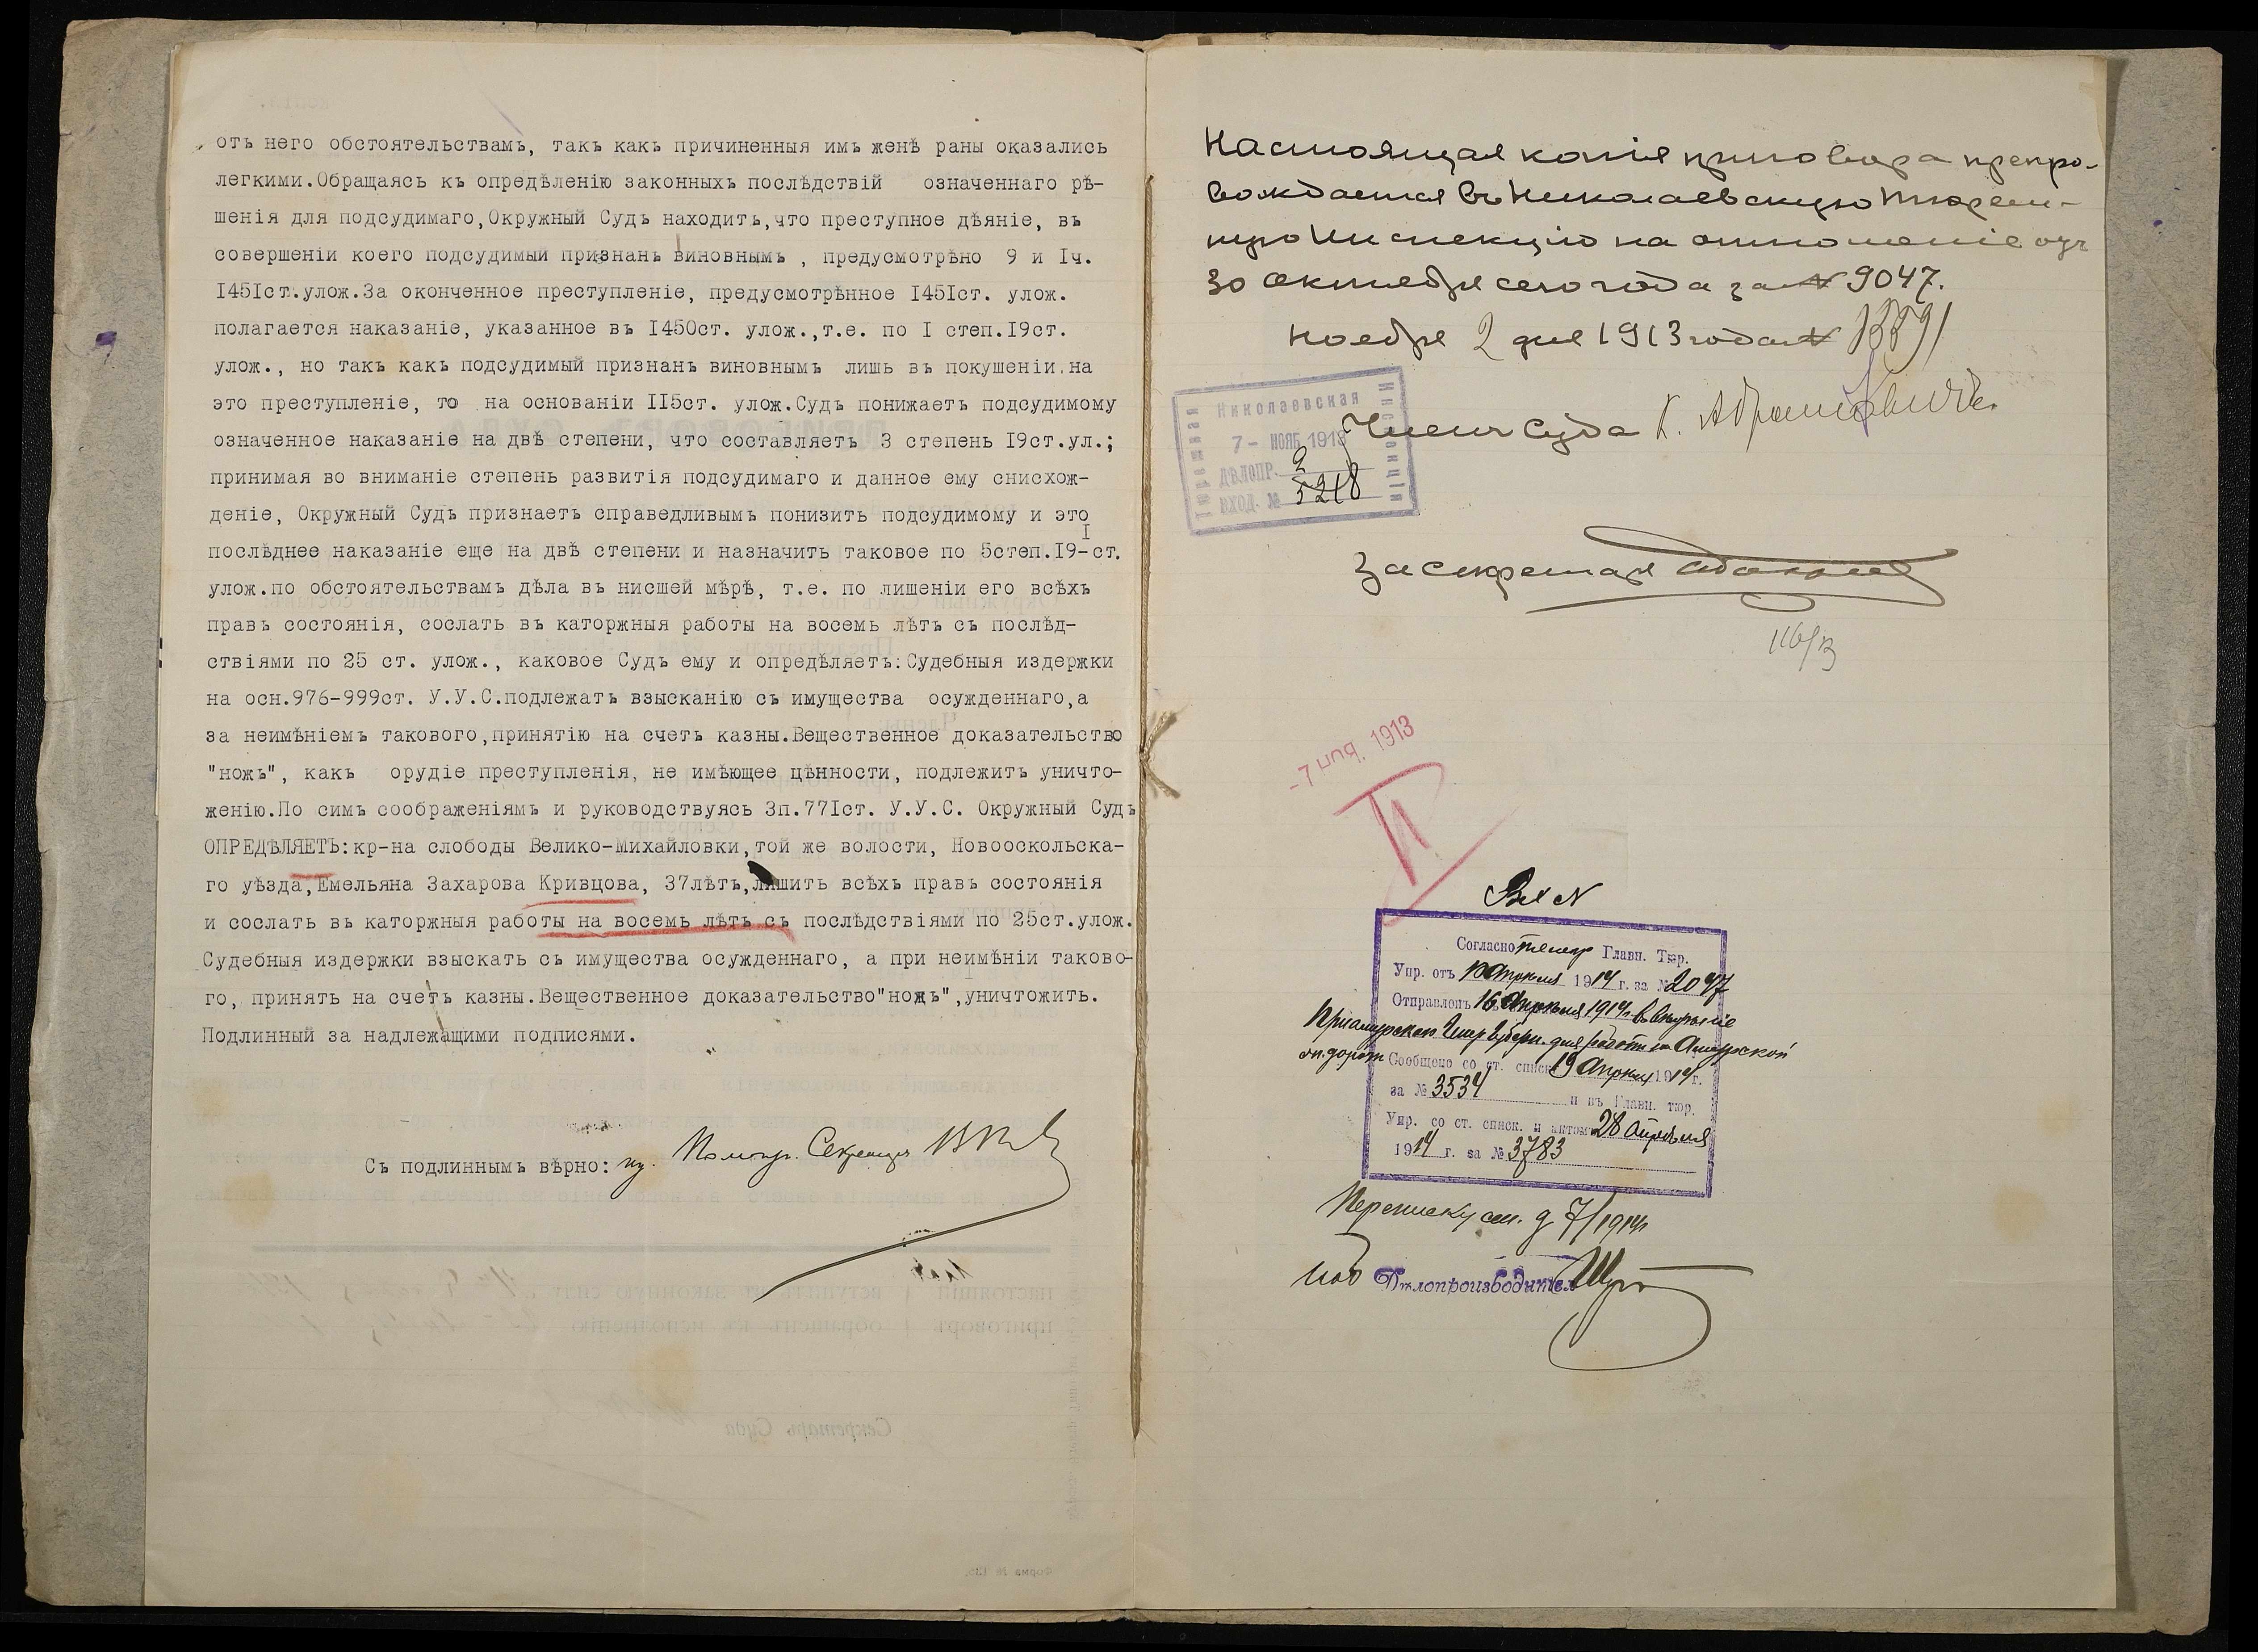 отъ него обстоятельствамъ, такъ какъ причиненныя имъ женѣ раны оказались
легкими.Обращаясь къ опредѣленію законныхъ послѣдствій означеннаго рѣ-
шенія для подсудимаго,Окружный Судъ находитъ,что преступное дѣяніе, въ
совершеніи коего подсудимый признанъ виновнымъ , предусмотрѣно 9 и Iч.
I45Iст.улож.За оконченное преступленіе, предусмотрѣнное I45Iст. улож.
полагается наказаніе, указанное въ I450ст. улож.,т.е. по I степ.I9ст.
улож., но такъ какъ подсудимый признанъ виновнымъ лишь въ покушеніи на
это преступленіе, то на основаніи II5ст. улож.Судъ понижаетъ подсудимому
означенное наказаніе на двѣ степени, что составляетъ 3 степень I9ст.ул.;
принимая во вниманіе степень развитія подсудимаго и данное ему снисхож-
деніе, Окружный Судъ признаетъ справедливымъ понизить подсудимому и это
послѣднее наказаніе еще на двѣ степени и назначить таковое по 5степ.I9-Iст.
улож.по обстоятельствамъ дѣла въ нисшей мѣрѣ, т.е. по лишеніи его всѣхъ
правъ состоянія, сослать въ каторжныя работы на восемь лѣтъ съ послѣд-
ствіями по 25 ст. улож., каковое Судъ ему и опредѣляетъ:Судебныя издержки
на осн.976-999ст. У.У.С.подлежатъ взысканію съ имущества осужденнаго,а
за неимѣніемъ такового,принятію на счетъ казны.Вещественное доказательство
"ножъ", какъ орудіе преступленія, не имѣющее цѣнности, подлежитъ уничто-
женію.По симъ соображеніямъ и руководствуясь 3п.77Iст. У.У.С. Окружный Судъ
ОПРЕДѢЛЯЕТЪ:кр-на слободы Велико-Михайловки,той же волости, Новооскольска-
го уѣзда,Емельяна Захарова Кривцова, 37лѣтъ,лишить всѣхъ правъ состоянія
и сослать въ каторжныя работы на восемь лѣтъ съ послѣдствіями по 25ст.улож.
Судебныя издержки взыскать съ имущества осужденнаго, а при неимѣніи таково-
го, принять на счетъ казны.Вещественное доказательство"ножъ",уничтожить.
Подлинный за надлежащими подписями.
Съ подлиннымъ вѣрно: Помощ. Секретаря
Настоящая копія приговора препро-
вождается въ Николаевскую Тюрем-
ную Инспекцію на отношеніе отъ
30 октября сего года за № 9047.
Ноября 2 дня 1913 года №
Членъ Суда К. Абрамовичъ
Тюремная
Николаевская
Инспекція
7 - НОЯБ 1913
ДѢЛОПР. 2
ВХОД. № 5218
За секретаря
- 7 ноя. 1913
II
Согласно телегр Главн. Тюр.
Упр. отъ 10 Апрѣля 1914 г. за № 2047
Отправленъ 16 Апрѣля 1914 г. въ вѣдѣніе
Приамурскаго Генер Губерн. для работъ на Амурской
ж. дорогѣ Сообщено со ст. списк 19 Апрѣля 1914 г.
за № 3534 и въ Главн. тюр.
Упр. со ст. списк. и актомъ 28 Апрѣля
1914 г. за № 3783
Переписку см. д 7/1914 г.
Иоб Дѣлопроизводителя